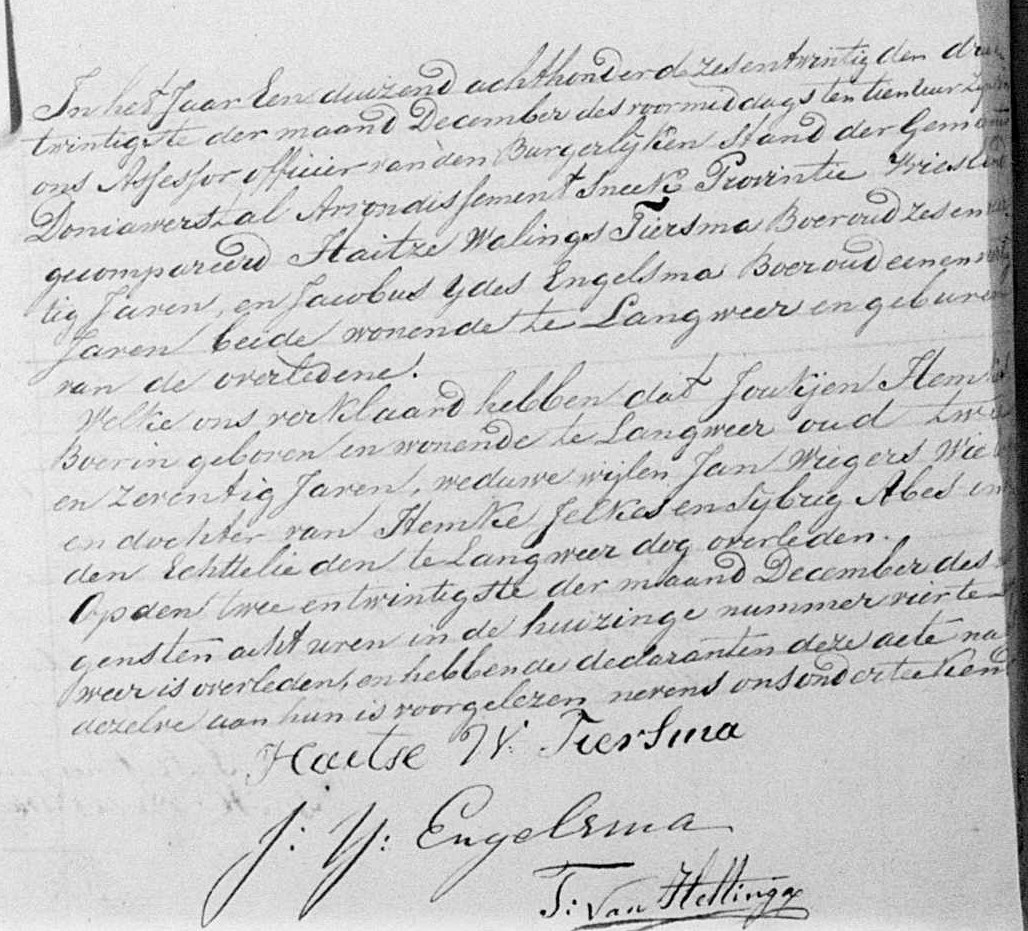 In het Jaar Een duizend achthonderd zesentwintig den drie
twintigste der maand December des voormiddags ten tien uur zijn
ons Assessor officier van den Burgerlijken Stand der Gemeente
Doniawerstal Arrondissement Sneek Provintie Vriesland
gecompareerd Haitze Walings Tiersma Boer oud zes en
tig Jaren, en Jacobus Ydes Engelsma Boer oud een en
Jaren beide wonende te Langweer en geburen
van de overledene.
Welke ons verklaard hebben dat Joukjen Hem
Boerin geboren en wonende te Langweer oud twee
en zeventig Jaren, weduwe wijlen Jan Wiegers Wie
en dochter van Hemke Jelkes en Sijbrig Abes in
den Echtelieden te Langweer dog overleden.
Op den twee en twintigste der maand December des
gens ten acht uren in de huizinge nummer vier te
weer is overleden, en hebbende declaranten deze acte na
dezelve aan hun is voorgelezen nevens ons onderteekend
Haitse W. Tiersma
J: Y: Engelsma
T: van Hettinga